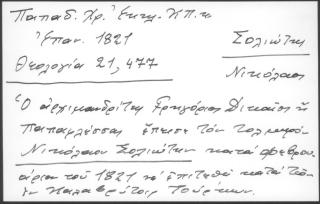 Παπαδ. Χρ. Ἐκκλ. Κ.Π. κ
Ἐπαν. 1821
Σολιώτης
Θεολογία 21, 477
Νικόλαος
Ὁ ἀρχιμανδρίτης Γρηγόριος Δικαῖος ἢ
Παπαφλέσσας ἔπεισε τὸν τολμηρὸν
Νικόλαον Σολιώτην κατὰ φεβρου-
άριον τοῦ 1821 νὰ ἐπιτεθῇ κατὰ τῶν
ἐν Καλαβρύτοις Τούρκων.